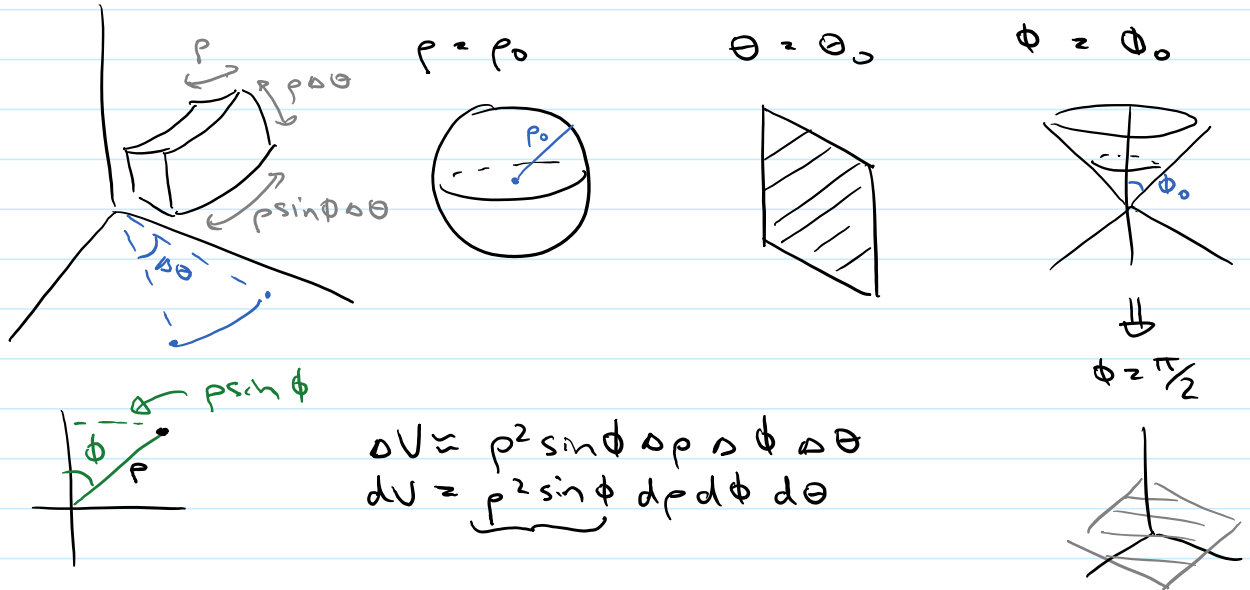 ρ
ρΔθ
ρsinϕΔθ
Δθ
ρ = ρ₀
ρ₀
θ = θ₀
ϕ = ϕ₀
ϕ₀
⇓
ϕ = π/2
ρsin ϕ
ϕ
ρ
ΔV ≈ ρ² sinϕ Δρ Δϕ Δθ
dV = ρ² sinϕ dρ dϕ dθ